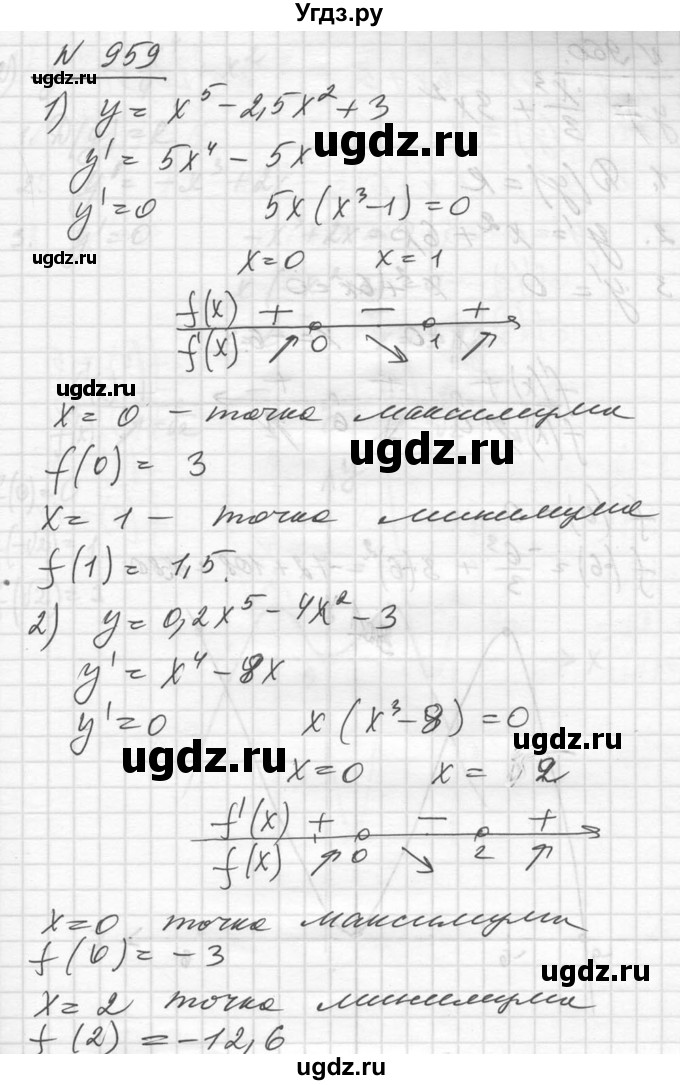 Угдз.ру
N 959
ugdz.ru
1) y = x⁵ - 2,5x² + 3
ugdz.ru
y' = 5x⁴ - 5x
y' = 0 5x(x³-1) = 0
ugdz.ru
x=0 x=1
f(x) + - +
f'(x) ↗ 0 ↘ 1 ↗
ugdz.ru
x = 0 - точка максимума
ugdz.ru
f(0) = 3
x = 1 - точка минимума
f(1) = 1,5.
ugdz.ru
2) y = 0,2x⁵ - 4x² - 3
y' = x⁴ - 8x
y' = 0 x(x³-8) = 0
ugdz.ru
x=0 x= 2
f'(x) + - +
f(x) ↑ 0 ↘ 2 ↑
ugdz.ru
x=0 точка максимума
f(0) = -3
ugdz.ru
x = 2 точка минимума
f(2) = -12,6
ugdz.ru